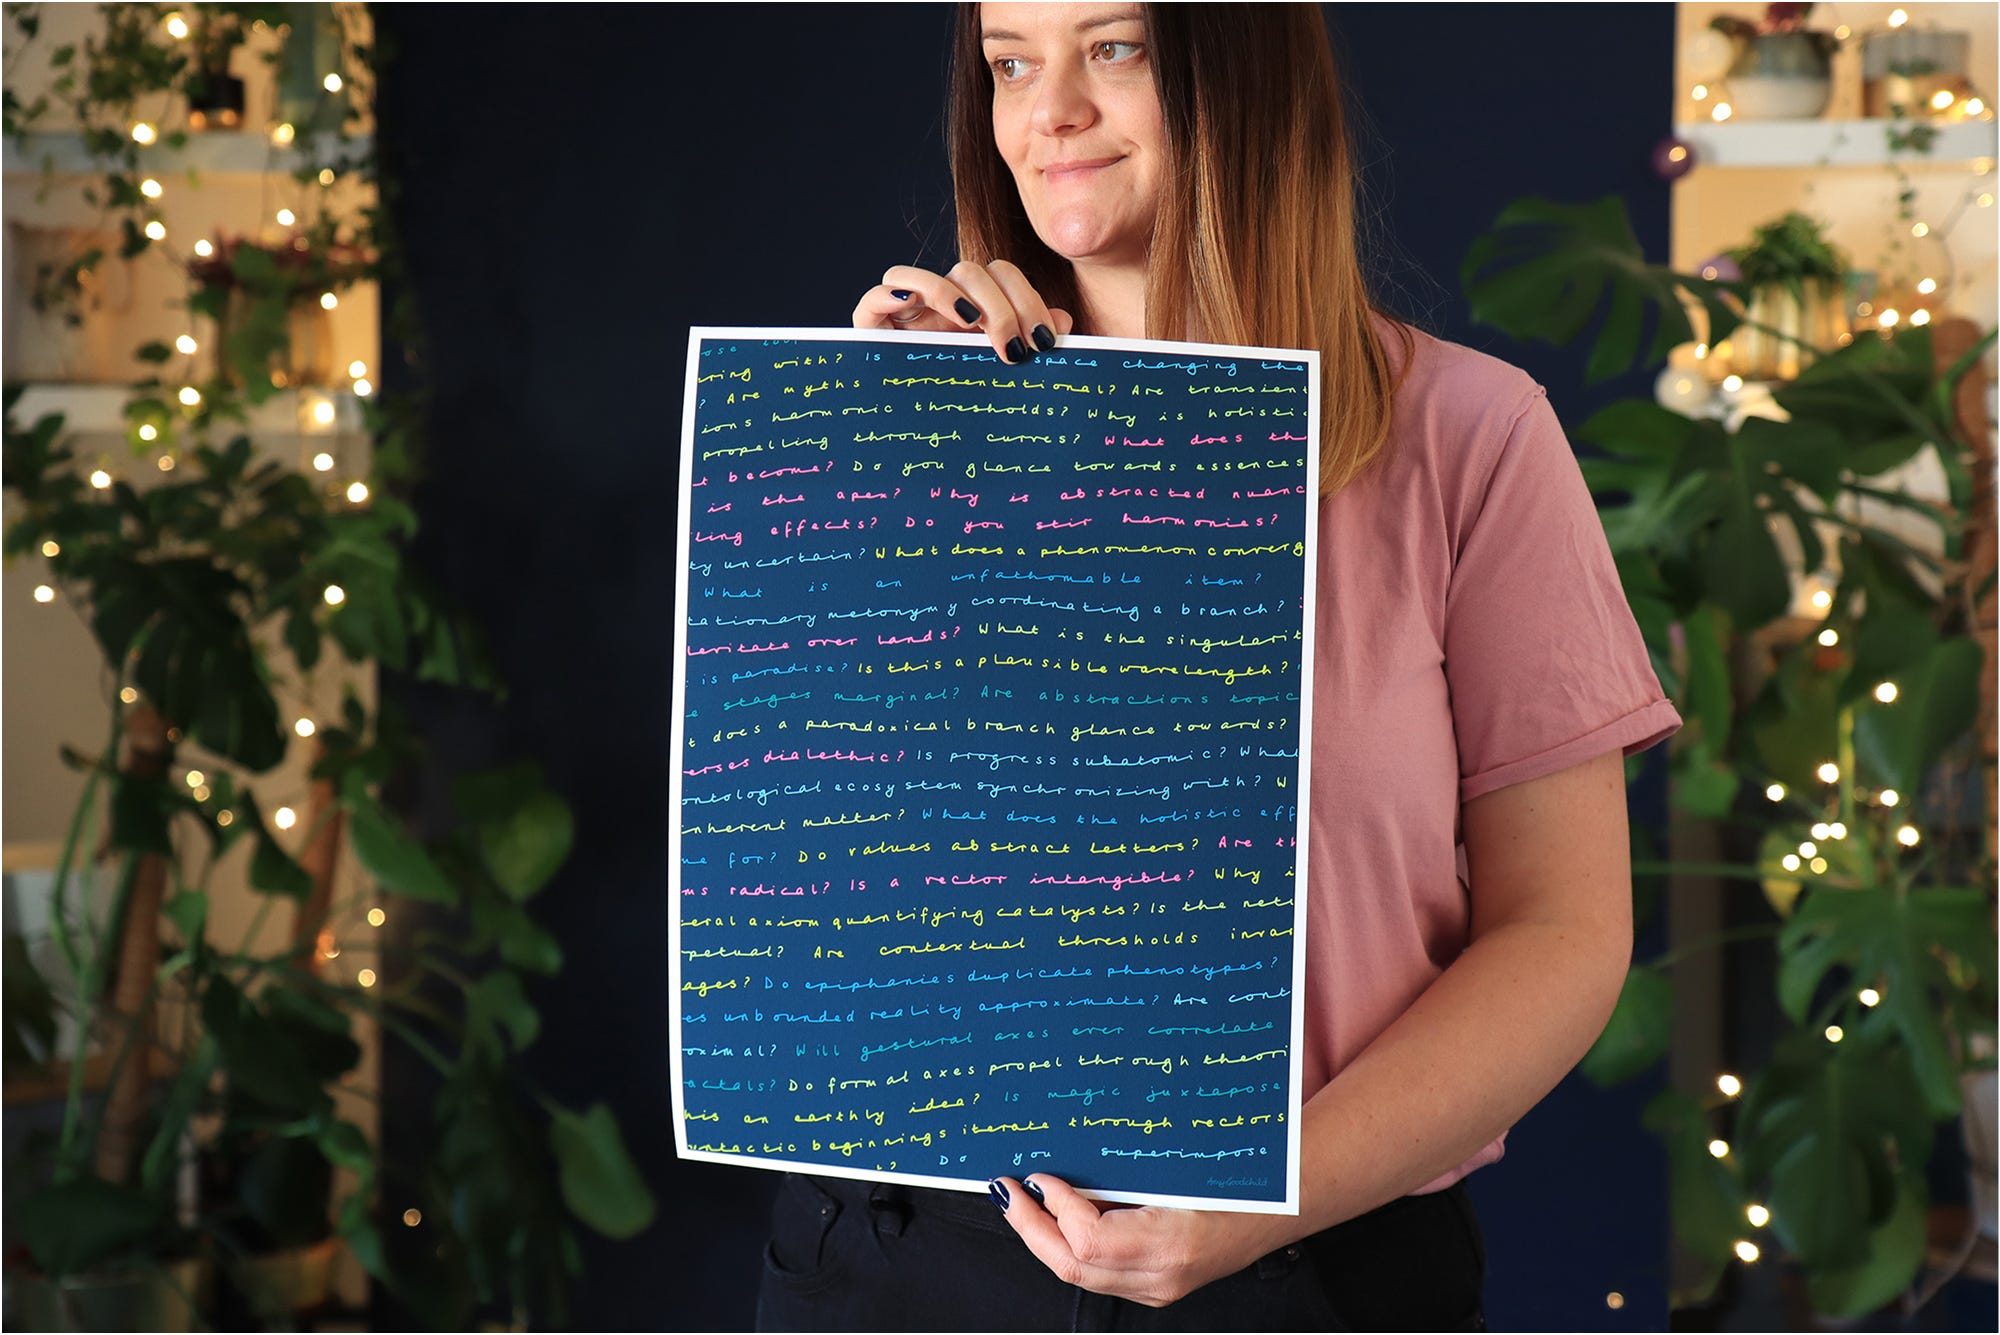 ose
ring with? Is artistic space changing the
? Are myths representational? Are transient
ions harmonic thresholds? Why is holistic
propelling through curves? What does th
t become? Do you glance towards essences
is the apex? Why is abstracted nuanc
ling effects? Do you stir harmonies?
ty uncertain? What does a phenomenon converg
What is an unfathomable item?
tationary metonymy coordinating a branch?
levitate over lands? What is the singularit
is paradise? Is this a plausible wavelength?
e stages marginal? Are abstractions topic
t does a paradoxical branch glance towards?
erses dialethic? Is progress subatomic? What
ontological ecosystem synchronizing with? W
inherent matter? What does the holistic eff
me for? Do values abstract letters? Are th
ms radical? Is a vector intangible? Why i
eral axiom quantifying catalysts? Is the net
petual? Are contextual thresholds invar
ages? Do epiphanies duplicate phenotypes?
es unbounded reality approximate? Are cont
oximal? Will gestural axes ever correlate
actals? Do formal axes propel through theori
his an earthly idea? Is magic juxtapose
yntactic beginnings iterate through vectors
t? Do you superimpose
Amy Goodchild